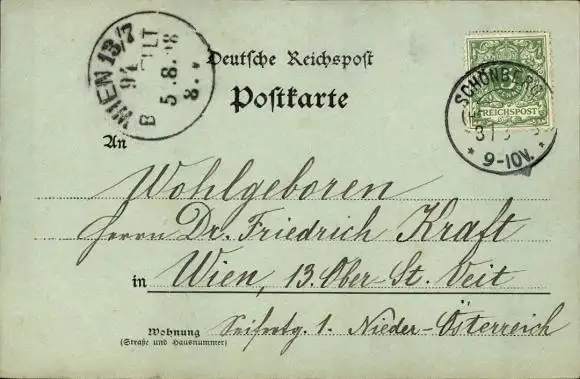 WIEN 13/7
94
B
5.8.98
8.
Deutsche Reichspost
Postkarte
REICHSPOST
SCHÖNBERG
31
9-10V.
An
Wohlgeboren
Herrn Dr. Friedrich Kraft
in Wien, 13. Ober-St. Veit
Wohnung 1. Nieder-Österreich
(Straße und Hausnummer)